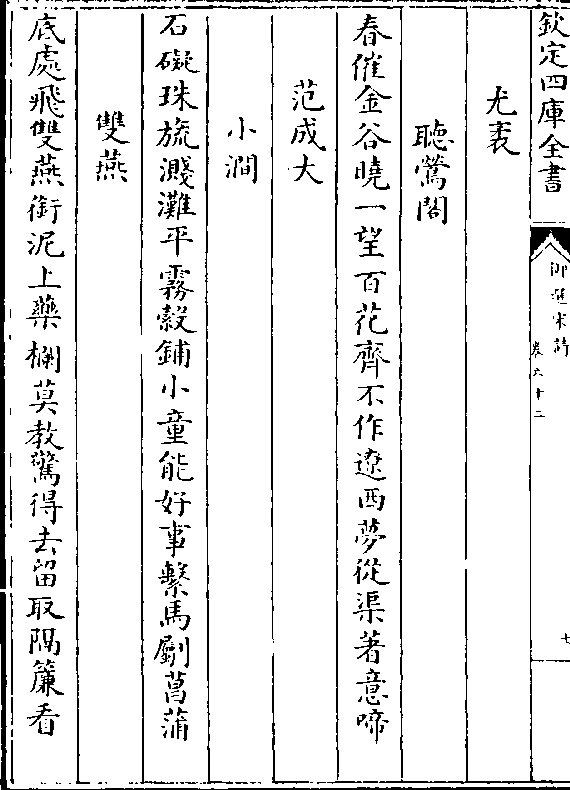 欽定四庫全書
御選宋詩
卷六十二
七
尤袤
聽鶯閣
春催金谷曉一望百花齊不作遼西夢從渠著意啼
范成大
小澗
石礙珠旒濺灘平霧縠鋪小童能好事繫馬劚菖蒲
雙燕
底處飛雙燕銜泥上藥欄莫教驚得去留取隔簾看